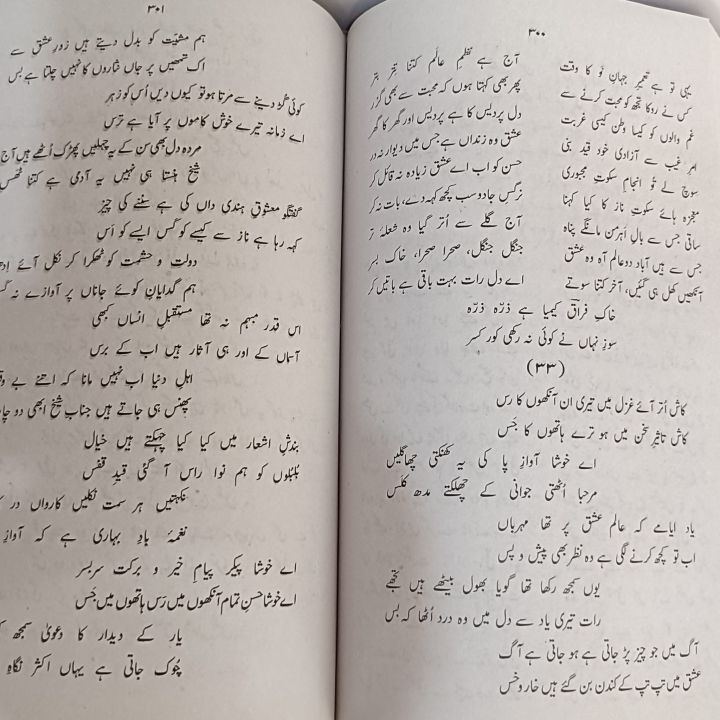 ۳۰۰
یہی تو ہے تعمیرِ جہانِ نَو کا وقت
آج ہے نظمِ عالَم کتنا تِتر بِتر
کس نے روکا تجھ کو محبت کرنے سے
پھر بھی کہتا ہوں کہ محبت سے بھی گزر
غم والوں کو کیسا وطن کیسی غربت
دل پردیس کا ہے پردیس اور گھر کا گھر
امرِ غیب سے آزادی خود قید بنی
عشق وہ زنداں ہے جس میں دیوار نہ در
سوچ لے تُو انجامِ سکوتِ مجبوری
حسن کو اب اے عشق زیادہ نہ قائل کر
معجزہ ہائے سکوتِ ناز کا کیا کہنا
نرگسِ جادو سب کچھ کہہ دے، بات نہ کر
ساقی جس سے بالِ اہرمن مانگے پناہ
آج گلے سے اُتر گیا وہ شعلۂ تر
جس سے ہیں آباد دو عالم آہ وہ عشق
جنگل جنگل، صحرا صحرا، خاک بسر
آنکھیں کھل ہی گئیں، آخر کتنا سوتے
اے دل رات بہت باقی ہے باتیں کر
خاکِ فراقؔ کیمیا ہے ذرّہ ذرّہ
سوزِ نہاں نے کوئی نہ رکھی کور کسر
(۳۳)
کاش اُتر آئے غزل میں تیری ان آنکھوں کا رس
کاش تاثیرِ سخن میں ہو ترے ہاتھوں کا جَس
اے خوشا آوازِ پا کی یہ کھنکتی چھاگلیں
مرحبا اُٹھتی جوانی کے چھلکتے مدھ کلس
یاد ایامے کہ عالم عشق پر تھا مہرباں
اب تو کچھ کرنے لگی ہے وہ نظر بھی پیش و پس
یوں سمجھ رکھا تھا گویا بھول بیٹھے ہیں تجھے
رات تیری یاد سے دل میں وہ درد اُٹھا کہ بس
آگ میں جو چیز پڑ جاتی ہے ہو جاتی ہے آگ
عشق میں تپ تپ کے کندن بن گئے ہیں خار و خس
۳۰۱
ہم مشیّت کو بدل دیتے ہیں زورِ عشق سے
اک تمھیں پر جاں نثاروں کا نہیں چلتا ہے بس
کوئی گُڑ دینے سے مرتا ہو تو کیوں دیں اُس کو زہر
اے زمانہ تیرے خوش کاموں پر آیا ہے ترس
مردہ دل بھی سن کے یہ چہلیں پھڑک اُٹھے ہیں آج
شیخ ہنستا ہی نہیں یہ آدمی ہے کتنا ٹھس
گفتگو معشوقِ ہندی داں کی ہے سننے کی چیز
کہہ رہا ہے ناز سے کیسے کو گَس ایسے کو اَس
دولت و حشمت کو ٹھکرا کر نکل آئے
ہم گدایانِ کوئے جاناں پر آوازے نہ
اس قدر مبہم نہ تھا مستقبلِ انساں کبھی
آسماں کے اور ہی آثار ہیں اب کے برس
اہلِ دنیا اب نہیں مانا کہ اتنے بے
پھنس ہی جاتے ہیں جنابِ شیخ ابھی دو
بندشِ اشعار میں کیا کیا چہکتے ہیں خیال
بُلبُلوں کو ہم نوا راس آ گئی قیدِ قفس
نکہتیں ہر سمت نکلیں کارواں در
نغمۂ بادِ بہاری ہے کہ آوازِ
اے خوشا پیکر پیامِ خیر و برکت سربسر
اے خوشا حسنِ تمام آنکھوں میں رَس ہاتھوں میں جَس
یار کے دیدار کا دعویٰ سمجھ
چُوک جاتی ہے یہاں اکثر نگاہِ